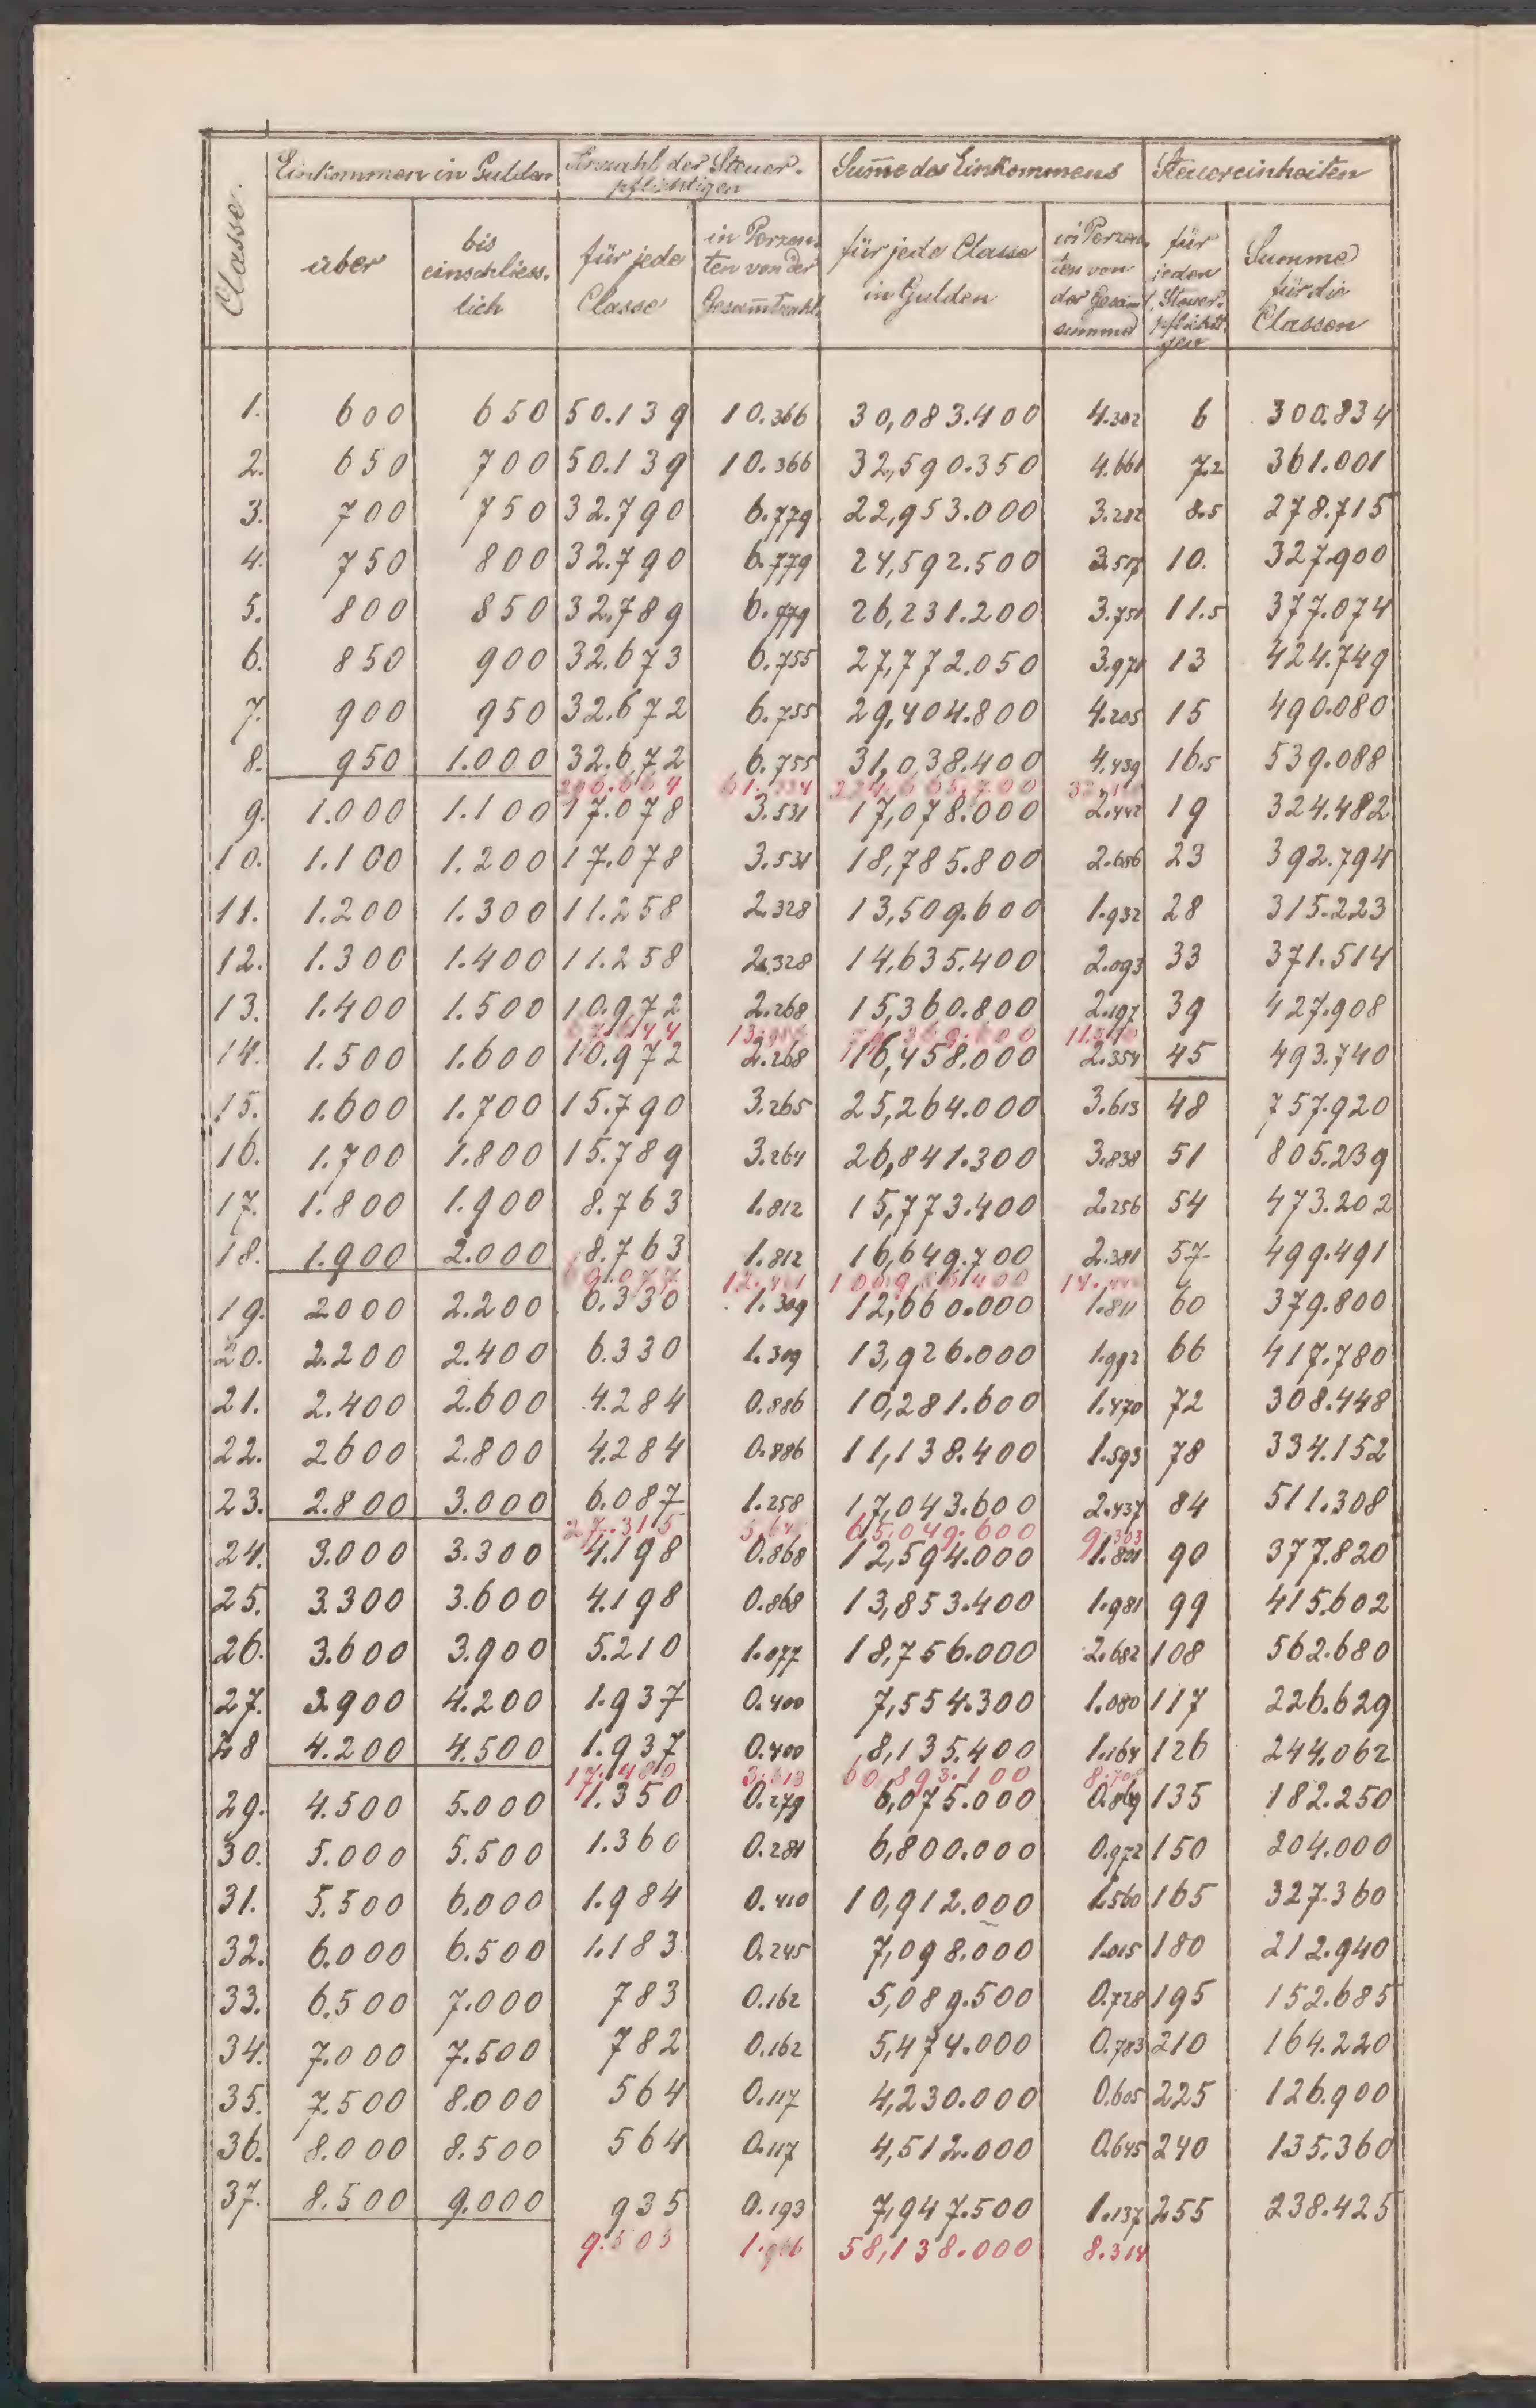 Classe.
Einkommen in Gulden
Anzahl der Steuer-
pflichtigen
Summe des Einkommens
Steuereinheiten
über
bis
einschliess-
lich
für jede
Classe
in Perzen-
ten von der
Gesamtzahl
für jede Classe
in Gulden
in Perzen-
ten von
der Gesam-
summe
für
jeden
Steuer-
pflichti-
gen
Summe
für die
Classen
1. 600 650 50.139 10.366 30,083.400 4.302 6 300.834
2. 650 700 50.139 10.366 32,590.350 4.661 7.2 361.001
3. 700 750 32.790 6.779 22,953.000 3.282 8.5 278.715
4. 750 800 32.790 6.779 24,592.500 3.517 10. 327.900
5. 800 850 32.789 6.779 26,231.200 3.751 11.5 377.074
6. 850 900 32.673 6.755 27,772.050 3.971 13 424.749
7. 900 950 32.672 6.755 29,404.800 4.205 15 490.080
8. 950 1.000 32.672 6.755 31,038.400 4.439 16.5 539.088
296.664 61.334 224,665.700
9. 1.000 1.100 17.078 3.531 17,078.000 2.442 19 324.482
10. 1.100 1.200 17.078 3.531 18,785.800 2.686 23 392.794
11. 1.200 1.300 11.258 2.328 13,509.600 1.932 28 315.223
12. 1.300 1.400 11.258 2.328 14,635.400 2.093 33 371.514
13. 1.400 1.500 10.972 2.268 15,360.800 2.197 39 427.908
67.644 79,369.600
14. 1.500 1.600 10.972 2.268 16,458.000 2.354 45 493.740
15. 1.600 1.700 15.790 3.265 25,264.000 3.613 48 757.920
16. 1.700 1.800 15.789 3.264 26,841.300 3.838 51 805.239
17. 1.800 1.900 8.763 1.812 15,773.400 2.256 54 473.202
18. 1.900 2.000 8.763 1.812 16,649.700 2.381 57 499.491
60.077 12.421 100,986.400
19. 2000 2.200 6.330 1.309 12,660.000 1.811 60 379.800
20. 2.200 2.400 6.330 1.309 13,926.000 1.992 66 417.780
21. 2.400 2.600 4.284 0.886 10,281.600 1.470 72 308.448
22. 2600 2.800 4.284 0.886 11,138.400 1.593 78 334.152
23. 2.800 3.000 6.087 1.258 17,043.600 2.437 84 511.308
27.315 65,049.600 9.303
24. 3.000 3.300 4.198 0.868 12,594.000 1.801 90 377.820
25. 3.300 3.600 4.198 0.868 13,853.400 1.981 99 415.602
26. 3.600 3.900 5.210 1.077 18,756.000 2.682 108 562.680
27. 3.900 4.200 1.937 0.400 7,554.300 1.080 117 226.629
28 4.200 4.500 1.937 0.400 8,135.400 1.164 126 244.062
17.480 3.613 60,893.100 8.708
29. 4.500 5.000 1.350 0.279 6,075.000 0.869 135 182.250
30. 5.000 5.500 1.360 0.281 6,800.000 0.972 150 204.000
31. 5.500 6.000 1.984 0.410 10,912.000 1.560 165 327.360
32. 6.000 6.500 1.183 0.245 7,098.000 1.015 180 212.940
33. 6.500 7.000 783 0.162 5,089.500 0.728 195 152.685
34. 7.000 7.500 782 0.162 5,474.000 0.783 210 164.220
35. 7.500 8.000 564 0.117 4,230.000 0.605 225 126.900
36. 8.000 8.500 564 0.117 4,512.000 0.645 240 135.360
37. 8.500 9.000 935 0.193 7,947.500 1.137 255 238.425
9.505 1.966 58,138.000 8.314